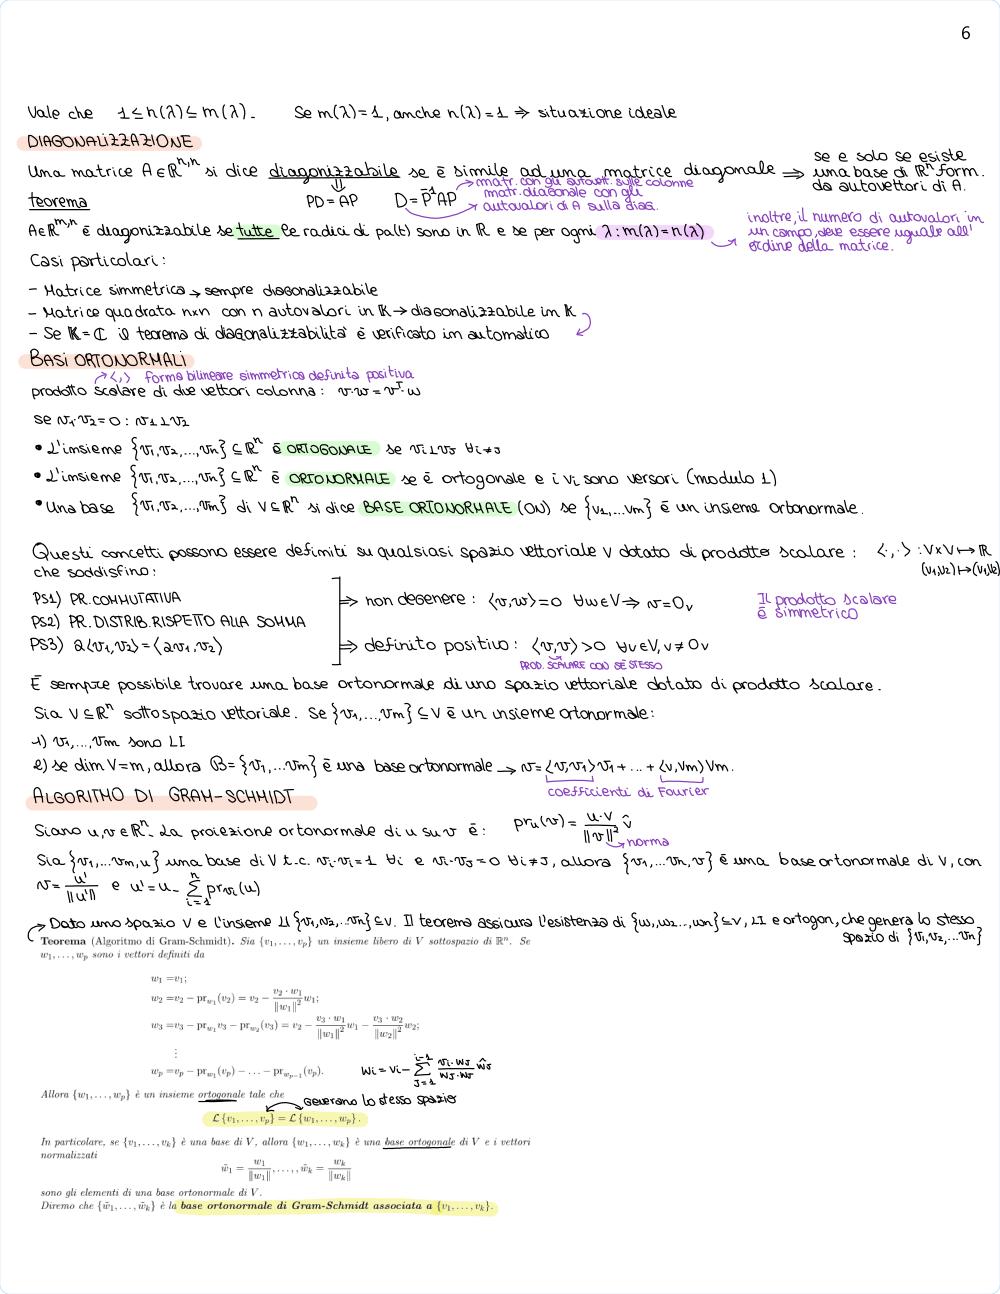 6
Vale che 1 ≤ n(λ) ≤ m(λ). Se m(λ)=1, anche n(λ)=1 ⇒ situazione ideale
DIAGONALIZZAZIONE
Una matrice A∈ℝ^{n,n} si dice diagonizzabile se è simile ad una matrice diagonale ⇒ se e solo se esiste
una base di ℝⁿ form.
da autovettori di A.
⇓
PD = AP D = P⁻¹AP
matr. con gli autovett. sulle colonne
matr. diagonale con gli
autovalori di A sulla diag.
teorema
A∈ℝ^{m,n} è diagonizzabile se tutte le radici di pa(t) sono in ℝ e se per ogni λ : m(λ) = n(λ)
inoltre, il numero di autovalori in
un campo, deve essere uguale all'
ordine della matrice.
Casi particolari:
- Matrice simmetrica → sempre diagonalizzabile
- Matrice quadrata nxn con n autovalori in 𝕂 → diagonalizzabile in 𝕂
- Se 𝕂 = ℂ il teorema di diagonalizzabilità è verificato in automatico
BASI ORTONORMALI
<,> forma bilineare simmetrica definita positiva
prodotto scalare di due vettori colonna: v·w = vᵀ·w
se v₁·v₂ = 0 : v₁⊥v₂
• L'insieme {v₁,v₂,...,vₙ} ⊆ ℝⁿ è ORTOGONALE se vi⊥vj ∀i≠j
• L'insieme {v₁,v₂,...,vₙ} ⊆ ℝⁿ è ORTONORMALE se è ortogonale e i vi sono versori (modulo 1)
• Una base {v₁,v₂,...,vm} di V⊆ℝⁿ si dice BASE ORTONORMALE (ON) se {v₁,...vm} è un insieme ortonormale.
Questi concetti possono essere definiti su qualsiasi spazio vettoriale V dotato di prodotto scalare : <·,·> : V×V ↦ ℝ
(v₁,v₂) ↦ (v₁,v₂)
che soddisfino:
PS1) PR. COMMUTATIVA
PS2) PR. DISTRIB. RISPETTO ALLA SOMMA
PS3) a<v₁,v₂> = <av₁,v₂>
⇒ non degenere : <v,w> = 0 ∀w∈V ⇒ v = 0ᵥ
Il prodotto scalare
è simmetrico
⇒ definito positivo : <v,v> > 0 ∀v∈V, v ≠ 0v
PROD. SCALARE CON SÉ STESSO
È sempre possibile trovare una base ortonormale di uno spazio vettoriale dotato di prodotto scalare.
Sia V⊆ℝⁿ sottospazio vettoriale. Se {v₁,...,vm} ⊆ V è un insieme ortonormale:
1) v₁,...,vm sono LI
2) se dim V=m, allora B = {v₁,...vm} è una base ortonormale → v = <v,v₁>v₁ + ... + <v,vm>vm.
coefficienti di Fourier
ALGORITMO DI GRAM-SCHMIDT
Siano u,v∈ℝⁿ. La proiezione ortonormale di u su v è: pru(v) = u·v / ||v||² v̂
norma
Sia {v₁,...vm,u} una base di V t.c. vi·vi = 1 ∀i e vi·vj = 0 ∀i≠j, allora {v₁,...vn,v} è una base ortonormale di V, con
v = u' / ||u'|| e u' = u - Σ_{i=1}^{n} prvi(u)
Dato uno spazio V e l'insieme LI {v₁,v₂,...vn} ⊆ V. Il teorema assicura l'esistenza di {w₁,w₂...,wn} ⊆ V, LI e ortogon, che genera lo stesso
spazio di {v₁,v₂,...vn}
Teorema (Algoritmo di Gram-Schmidt). Sia {v₁, . . . , vₚ} un insieme libero di V sottospazio di ℝⁿ. Se
w₁, . . . , wₚ sono i vettori definiti da
w₁ =v₁;
w₂ =v₂ − pr_{w₁}(v₂) = v₂ − v₂ · w₁ / ‖w₁‖² w₁;
w₃ =v₃ − pr_{w₁}v₃ − pr_{w₂}(v₃) = v₂ − v₃ · w₁ / ‖w₁‖² w₁ − v₃ · w₂ / ‖w₂‖² w₂;
⋮
wₚ =vₚ − pr_{w₁}(vₚ) − . . . − pr_{wₚ₋₁}(vₚ). Wi = Vi - Σ_{j=1}^{i-1} vi·wj / wj·wj ŵj
Allora {w₁, . . . , wₚ} è un insieme ortogonale tale che
Generano lo stesso spazio
ℒ {v₁, . . . , vₚ} = ℒ {w₁, . . . , wₚ} .
In particolare, se {v₁, . . . , vₖ} è una base di V, allora {w₁, . . . , wₖ} è una base ortogonale di V e i vettori
normalizzati
w̃₁ = w₁ / ‖w₁‖, . . . , , w̃ₖ = wₖ / ‖wₖ‖
sono gli elementi di una base ortonormale di V.
Diremo che {w̃₁, . . . , w̃ₖ} è la base ortonormale di Gram-Schmidt associata a {v₁, . . . , vₖ}.